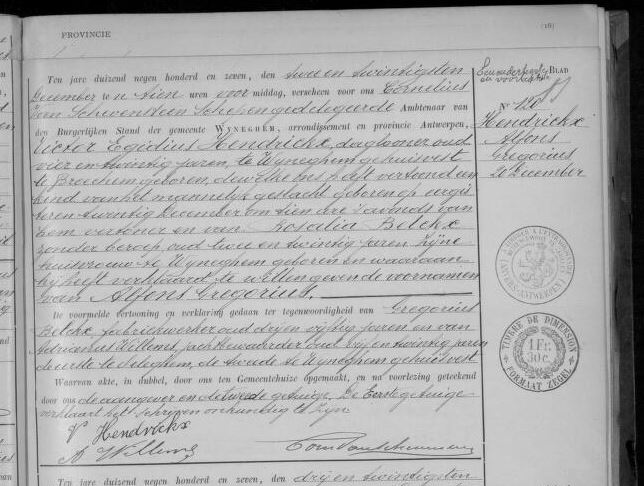 PROVINCIE
(18)
Ten jare duizend negen honderd en zeven, den twee en twintigsten
December te n tien uren voor middag, verscheen voor ons Cornelius
Van Schevensteen Schepen gedelegeerde Ambtenaar van
den Burgerlijken Stand der gemeente WYNEGHEM, arrondissement en provincie Antwerpen,
Victor Egidius Hendrickx, daglooner oud
vier en twintig jaren, te Wyneghem gehuisvest
te Broechem geboren, dewelke heeft vertoond een
kind van het mannelijk geslacht geboren op eergis
teren twintig December om tien ure 's avonds van
hem vertooner en van Rosalia Belckx
zonder beroep, oud twee en twintig jaren zijne
huisvrouw te Wyneghem geboren en waaraan
hij heeft verklaard te willen geven de voornamen
van Alfons Gregorius.
De voormelde vertooning en verklaring gedaan ter tegenwoordigheid van Gregorius
Belckx fabriekwerker oud drij en vijftig jaren en van
Adrianus Willems, jachtbewaarder oud vijf en twintig jaren
de eerste te , de tweede te Wyneghem gehuisvest
Waarvan akte, in dubbel, door ons ten Gemeentehuize opgemaakt, en na voorlezing geteekend
door ons de aangever en de tweede getuige. De Eerste getuige
verklaart het schrijven onkundig te zijn
V Hendrickx
A Willems
Ten jare duizend negen honderd en zeven, den drij en twintigsten
Een en dertigste BLAD
en voorlaatste
N° 120
Hendrickx
Alfons
Gregorius
20 December
TIMBRE DE DIMENSION
1 Fr.
30 c.
FORMAAT ZEGEL